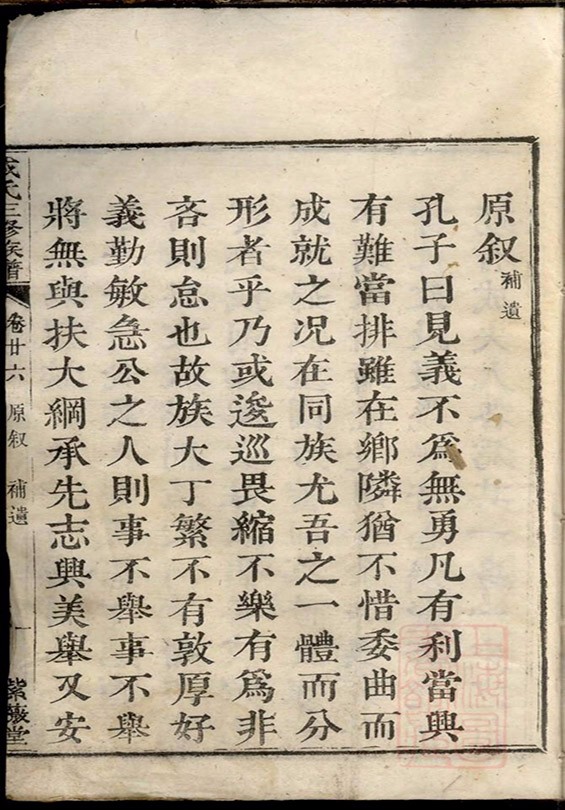 原叙補遺
孔子曰見義不爲無勇凡有利當興
有難當排雖在鄉隣猶不惜委曲而
成就之况在同族尤吾之一體而分
形者乎乃或逡巡畏縮不樂有爲非
吝則怠也故族大丁繁不有敦厚好
義勤敏急公之人則事不舉事不舉
將無與扶大綱承先志興美舉又安
成氏三修族譜
卷廿六 原叙 補遺
一
紫薇堂